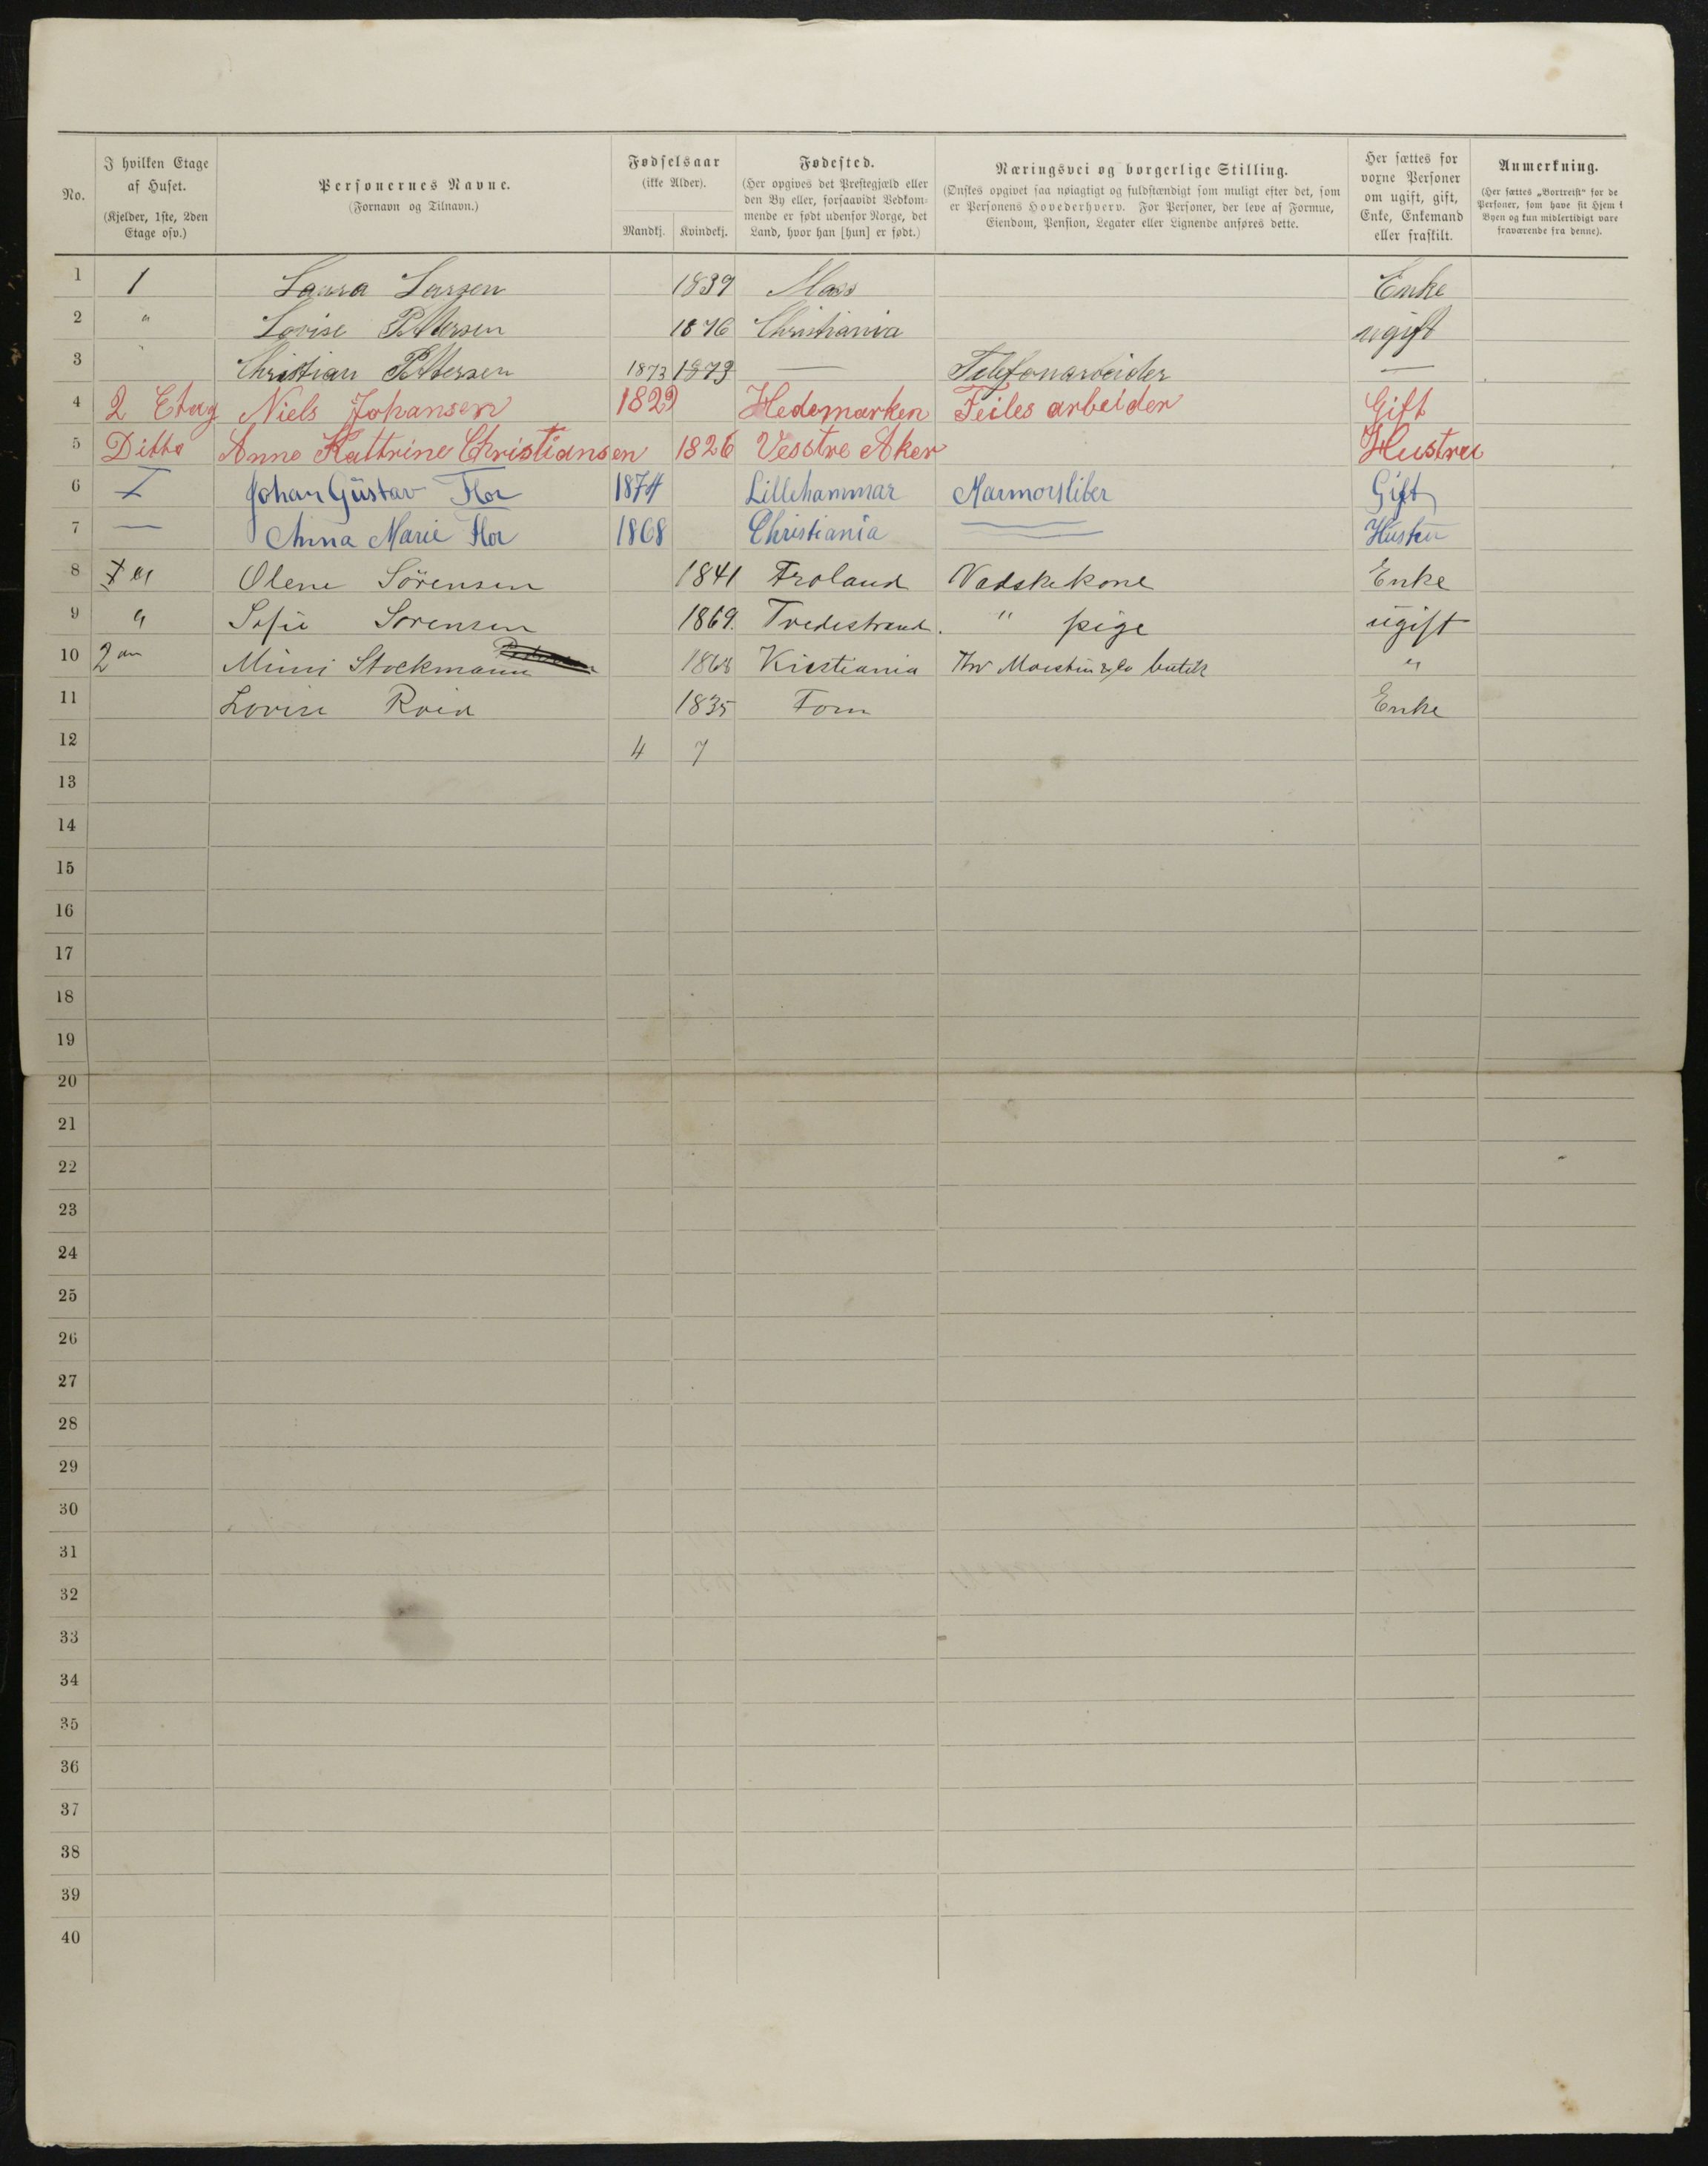 No.
I hvilken Etage af Huset.
(Kjelder, 1ste, 2den Etage osv.)
Personernes Navne.
(Fornavn og Tilnavn.)
Fødselsaar
(ikke Alder).
Mandkj. Kvindekj.
Fødested.
(Her opgives det Prestegjæld eller den By eller, forsaavidt Vedkommende er født udenfor Norge, det Land, hvor han [hun] er født.)
Næringsvei og borgerlige Stilling.
(Ønskes opgivet saa nøiagtigt og fuldstændigt som muligt efter det, som er Personens Hovederhverv. For Personer, der leve af Formue, Eiendom, Pension, Legater eller Lignende anføres dette.
Her sættes for voxne Personer om ugift, gift, Enke, Enkemand eller fraskilt.
Anmerkning.
(Her sættes „Bortreist“ for de Personer, som have sit Hjem i Byen og kun midlertidigt vare fraværende fra denne).
1 1 Laura Larsen 1839 Moss Enke
2 " Lovise Pettersen 1876 Christiania ugift
3 " Christian Pettersen 1873 1873 — Telefonarbeider —
4 2 Etag Niels Johansen 1829 Hedemarken Feiles arbeider Gift
5 Ditto Anne Kattrine Christiansen 1826 Vesstre Aker Hustru
6 I Johan Güstav Flor 1874 Lillehammar Marmorsliber Gift
7 — Anna Marie Flor 1868 Christiania — Hustru
8 Olene Sörensen 1841 Froland Vadskekone Enke
9 " Sofie Sorensen 1869. Tvedestrand. " pige ugift
10 2 Mimi Stockmann 1868 Kristiania butik "
11 Lovise 1835 Enke
12 4 7
13
14
15
16
17
18
19
20
21
22
23
24
25
26
27
28
29
30
31
32
33
34
35
36
37
38
39
40